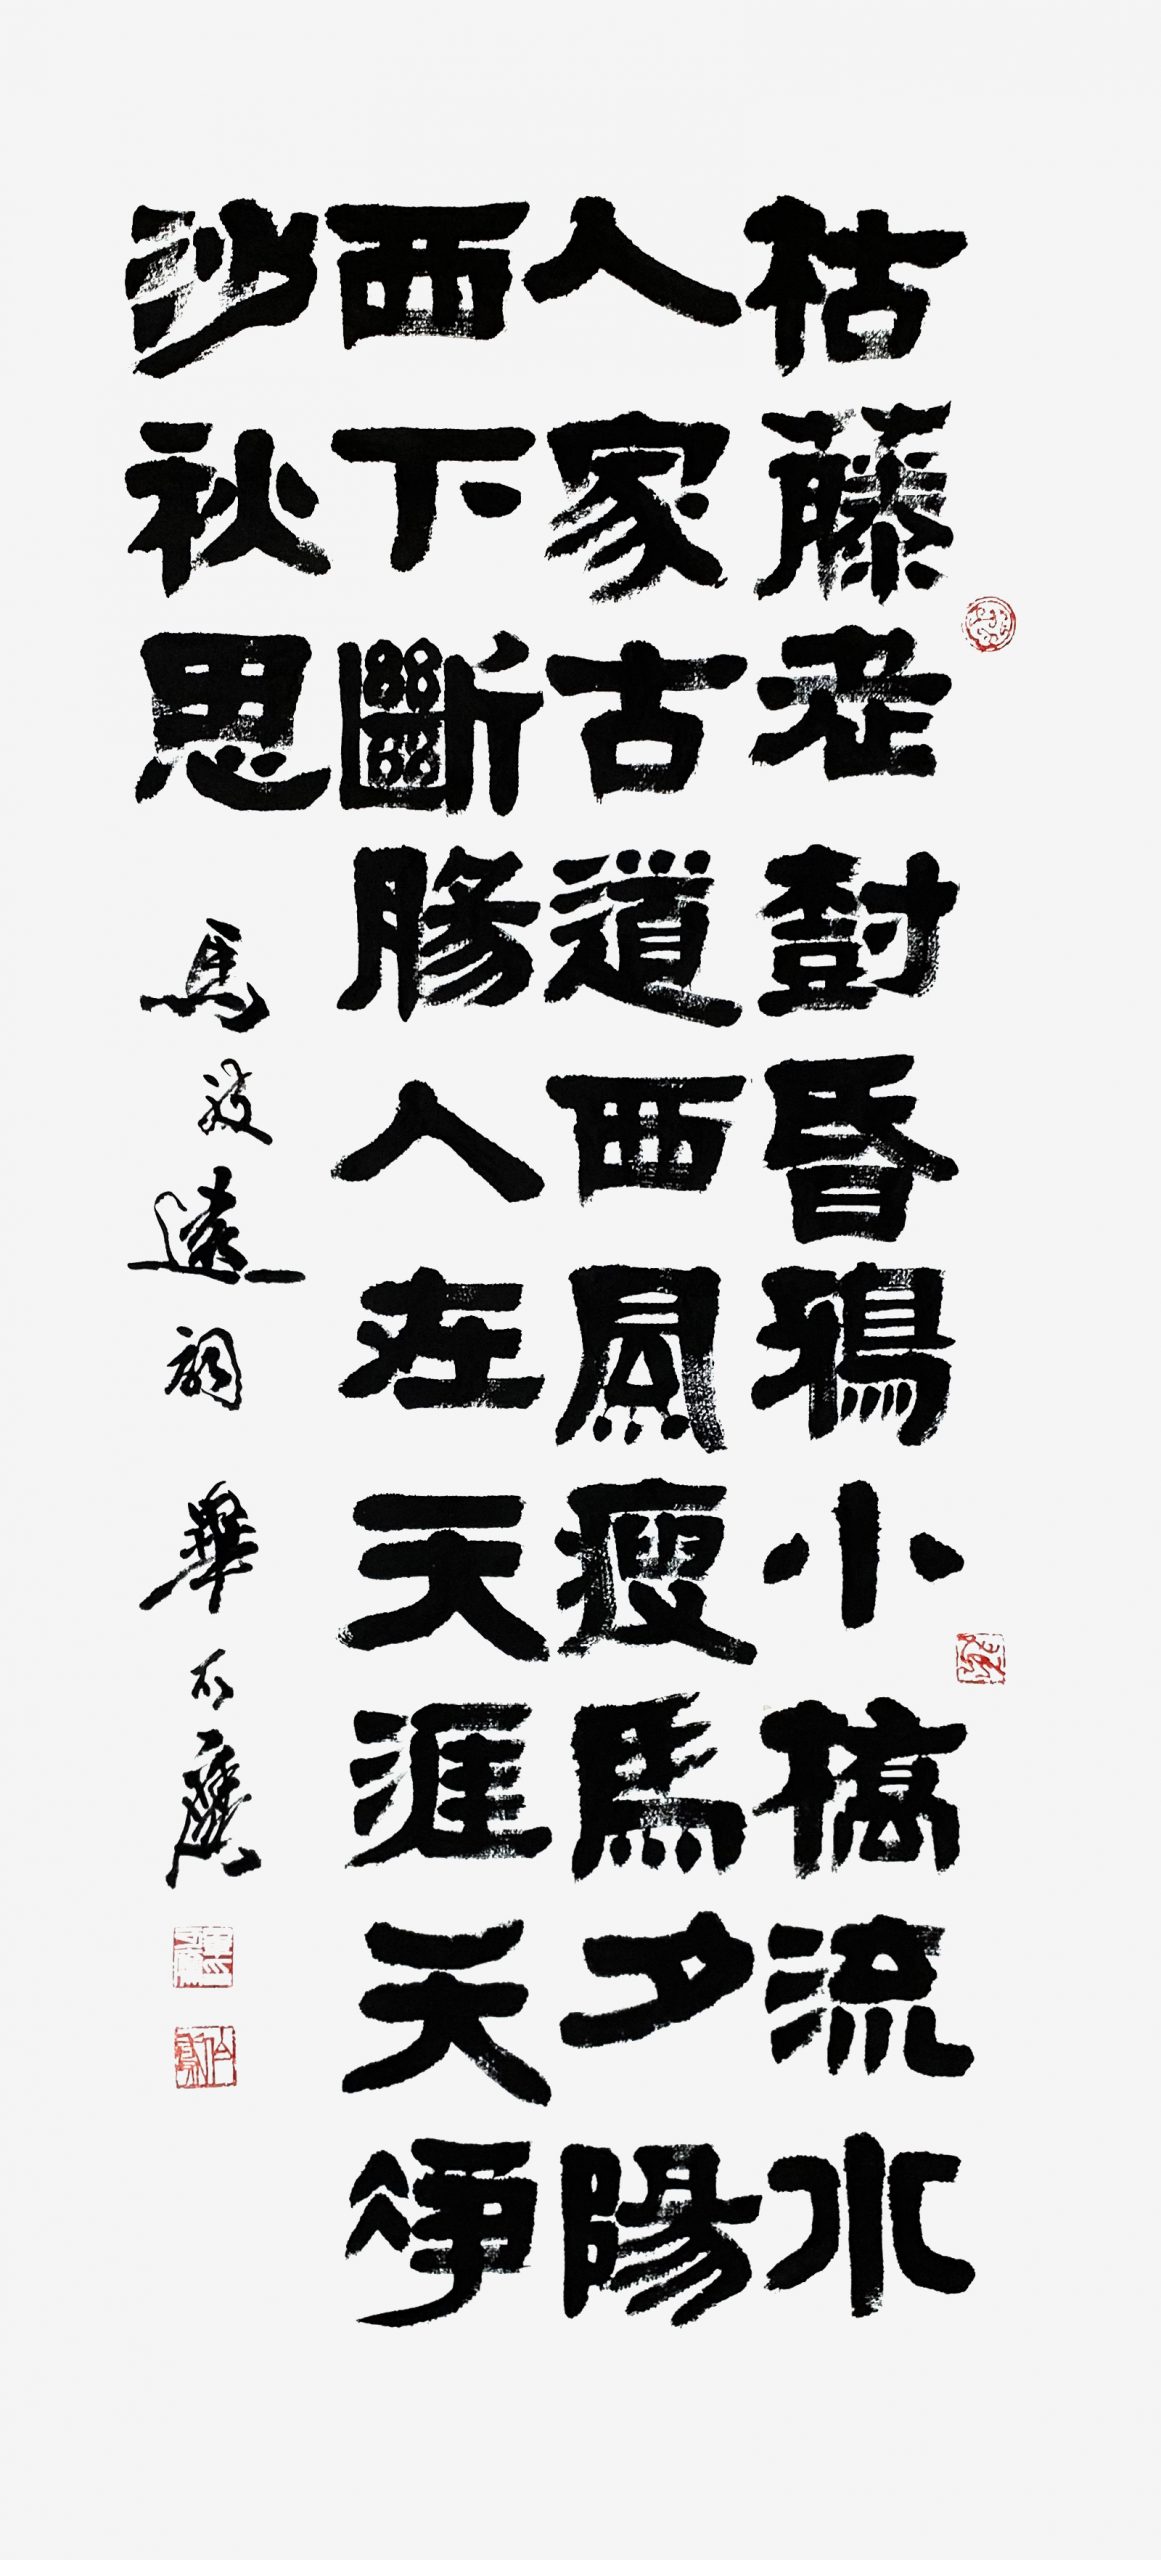 枯藤老樹昏鴉小橋流水
人家古道西風瘦馬夕陽
西下斷腸人在天涯天淨
沙秋思
馬致遠詞 畢